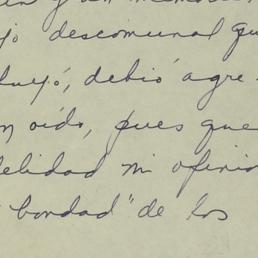 jo descomunal qu
luyó, debió agre-
n oído, pues que
delidad mi opinio
"bondad" de los